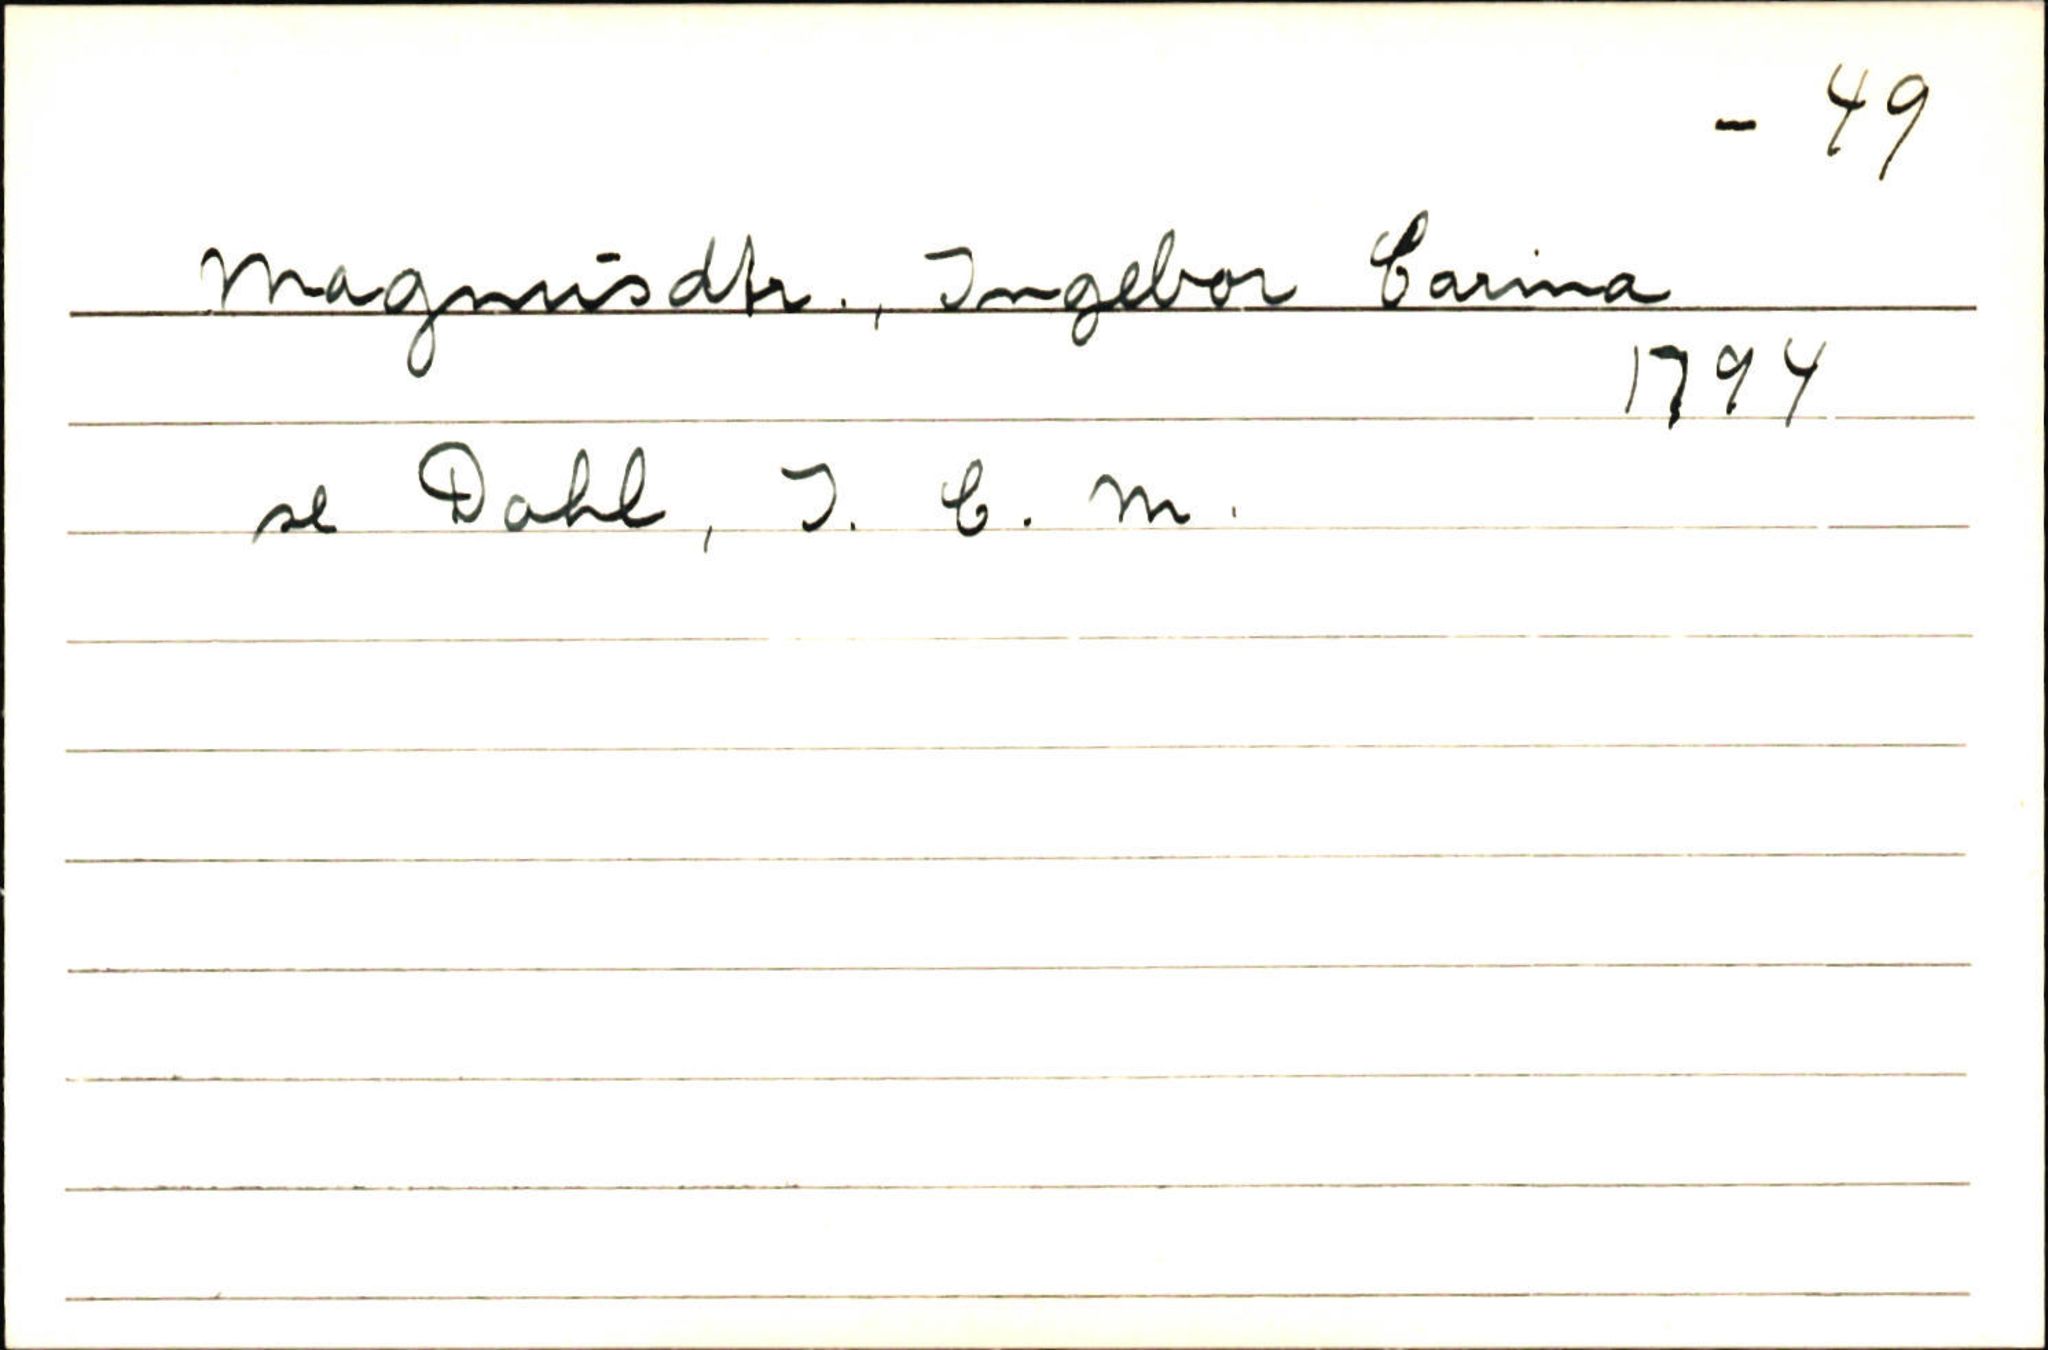 - 49
Magnusdtr., Ingebor Carina
1794
se Dahl, I. C. M.